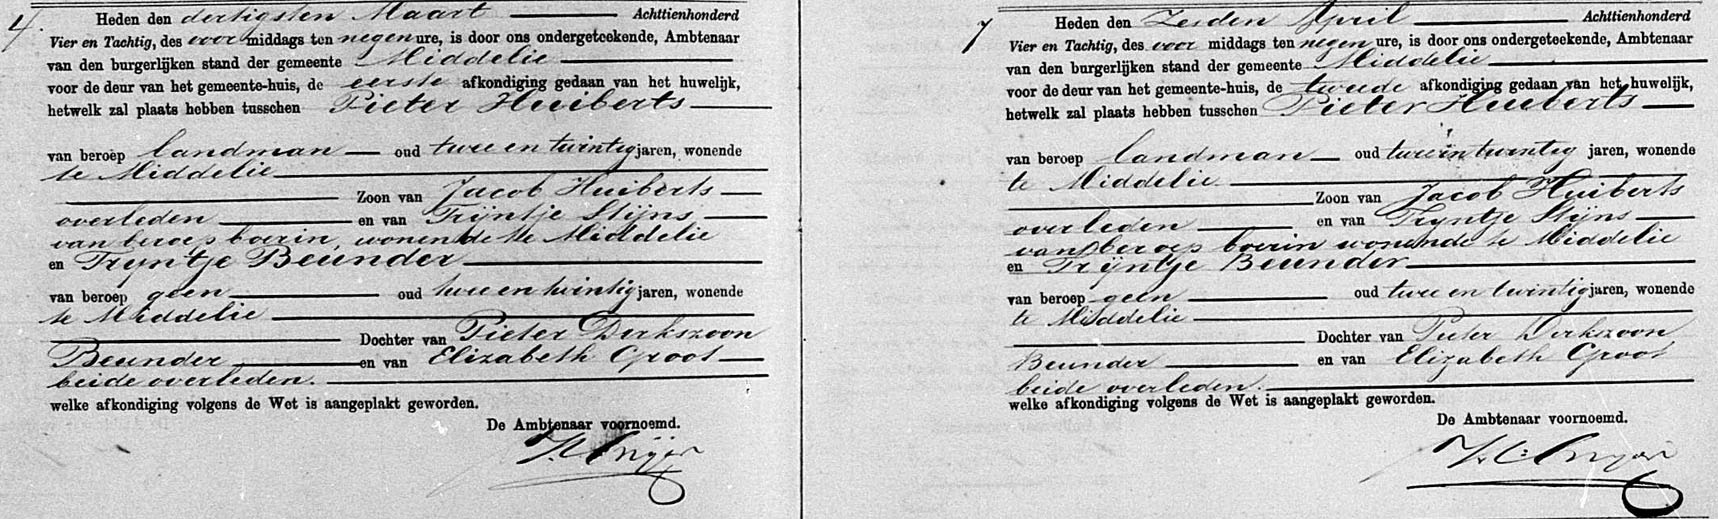 4.
Heden den dertigsten Maart Achttienhonderd
Vier en Tachtig, des voor middags ten negen ure, is door ons ondergeteekende, Ambtenaar
van den burgerlijken stand der gemeente Middelie
voor de deur van het gemeente-huis, de eerste afkondiging gedaan van het huwelijk,
hetwelk zal plaats hebben tusschen Pieter Huiberts
van beroep landman oud twee en twintig jaren, wonende
te Middelie
Zoon van Jacob Huiberts
overleden en van Trijntje Stijns
van beroep boerin, wonende te Middelie
en Trijntje Beunder
van beroep geen oud twee en twintig jaren, wonende
te Middelie
Dochter van Pieter Dirkszoon
Beunder en van Elizabeth Groot
beide overleden.
welke afkondiging volgens de Wet is aangeplakt geworden.
De Ambtenaar voornoemd.
7
Heden den Zesden April Achttienhonderd
Vier en Tachtig, des voor middags ten negen ure, is door ons ondergeteekende, Ambtenaar
van den burgerlijken stand der gemeente Middelie
voor de deur van het gemeente-huis, de tweede afkondiging gedaan van het huwelijk,
hetwelk zal plaats hebben tusschen Pieter Huiberts
van beroep landman oud twee en twintig jaren, wonende
te Middelie
Zoon van Jacob Huiberts
overleden en van Trijntje Stijns
van beroep boerin wonende te Middelie
en Trijntje Beunder
van beroep geen oud twee en twintig jaren, wonende
te Middelie
Dochter van Pieter Dirkszoon
Beunder en van Elizabeth Groot
beide overleden.
welke afkondiging volgens de Wet is aangeplakt geworden.
De Ambtenaar voornoemd.